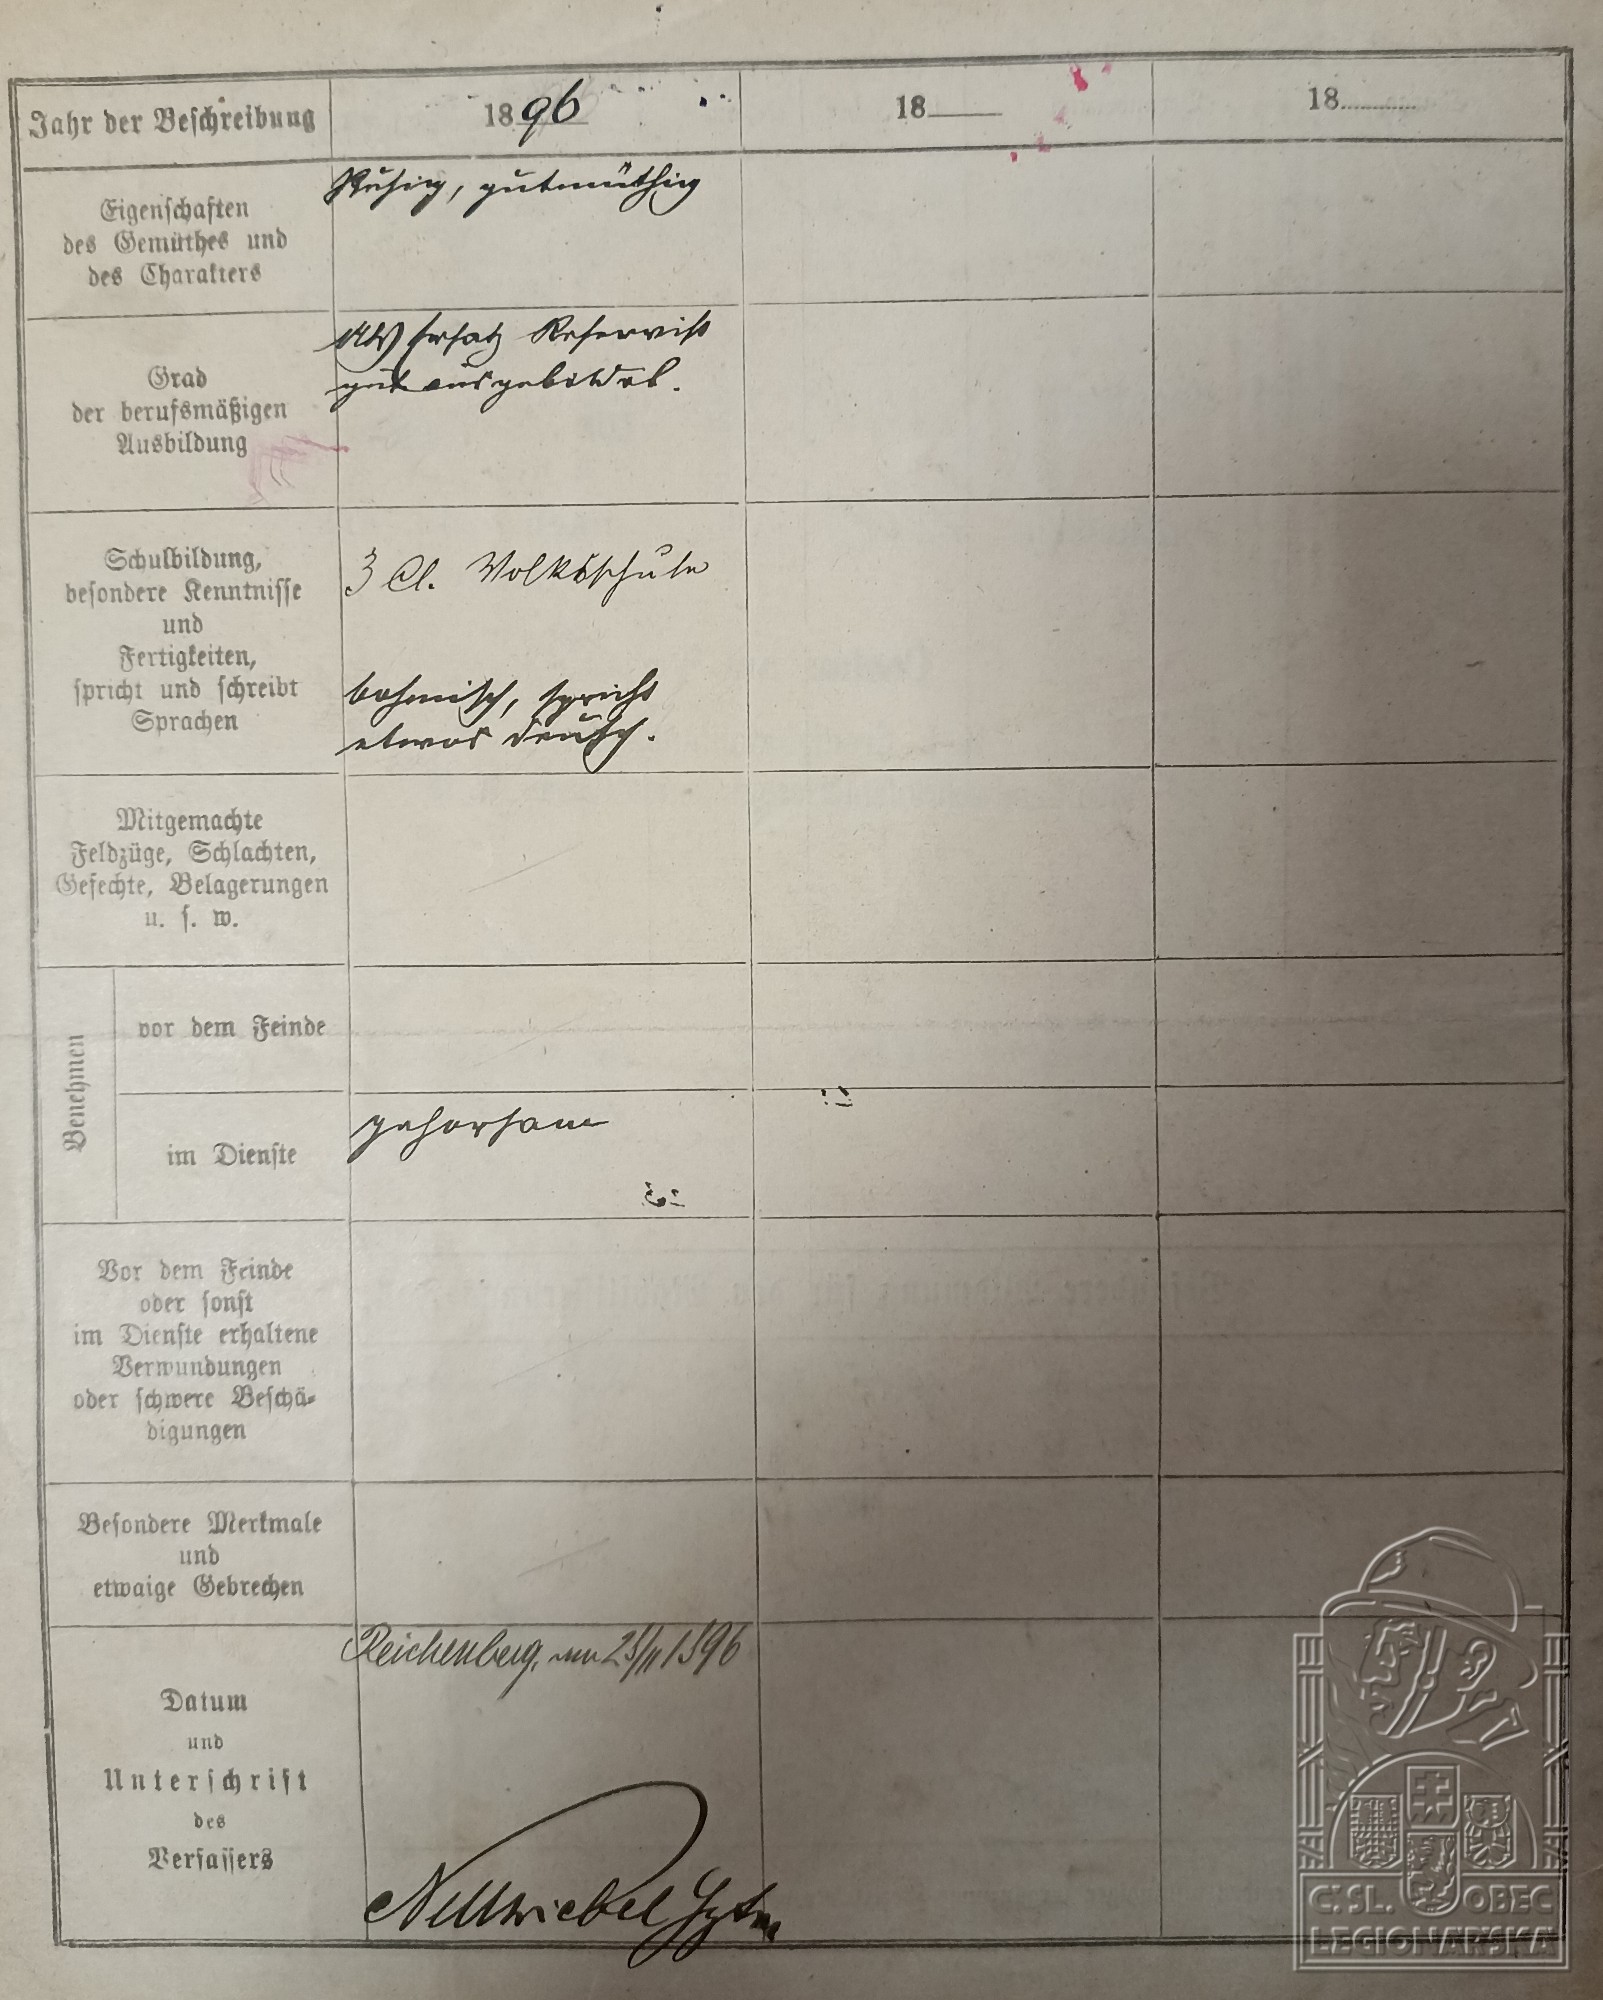 Jahr der Beschreibung
1896
18
18
Eigenschaften
des Gemüthes und
des Charakters
Ruhig, gutmüthig
Grad
der berufsmäßigen
Ausbildung
Als Ersatz Reservist
gut ausgebildet.
Schulbildung,
besondere Kenntnisse
und
Fertigkeiten,
spricht und schreibt
Sprachen
3 Cl. Volksschule
bohmisch, spricht
etwas deutsch.
Mitgemachte
Feldzüge, Schlachten,
Gefechte, Belagerungen
u. s. w.
Benehmen
vor dem Feinde
im Dienste
gehorsam
Vor dem Feinde
oder sonst
im Dienste erhaltene
Verwundungen
oder schwere Beschä-
digungen
Besondere Merkmale
und
etwaige Gebrechen
Datum
und
Unterschrift
des
Verfassers
Reichenberg, am 1896
Č.SL. OBEC
LEGIONÁŘSKÁ